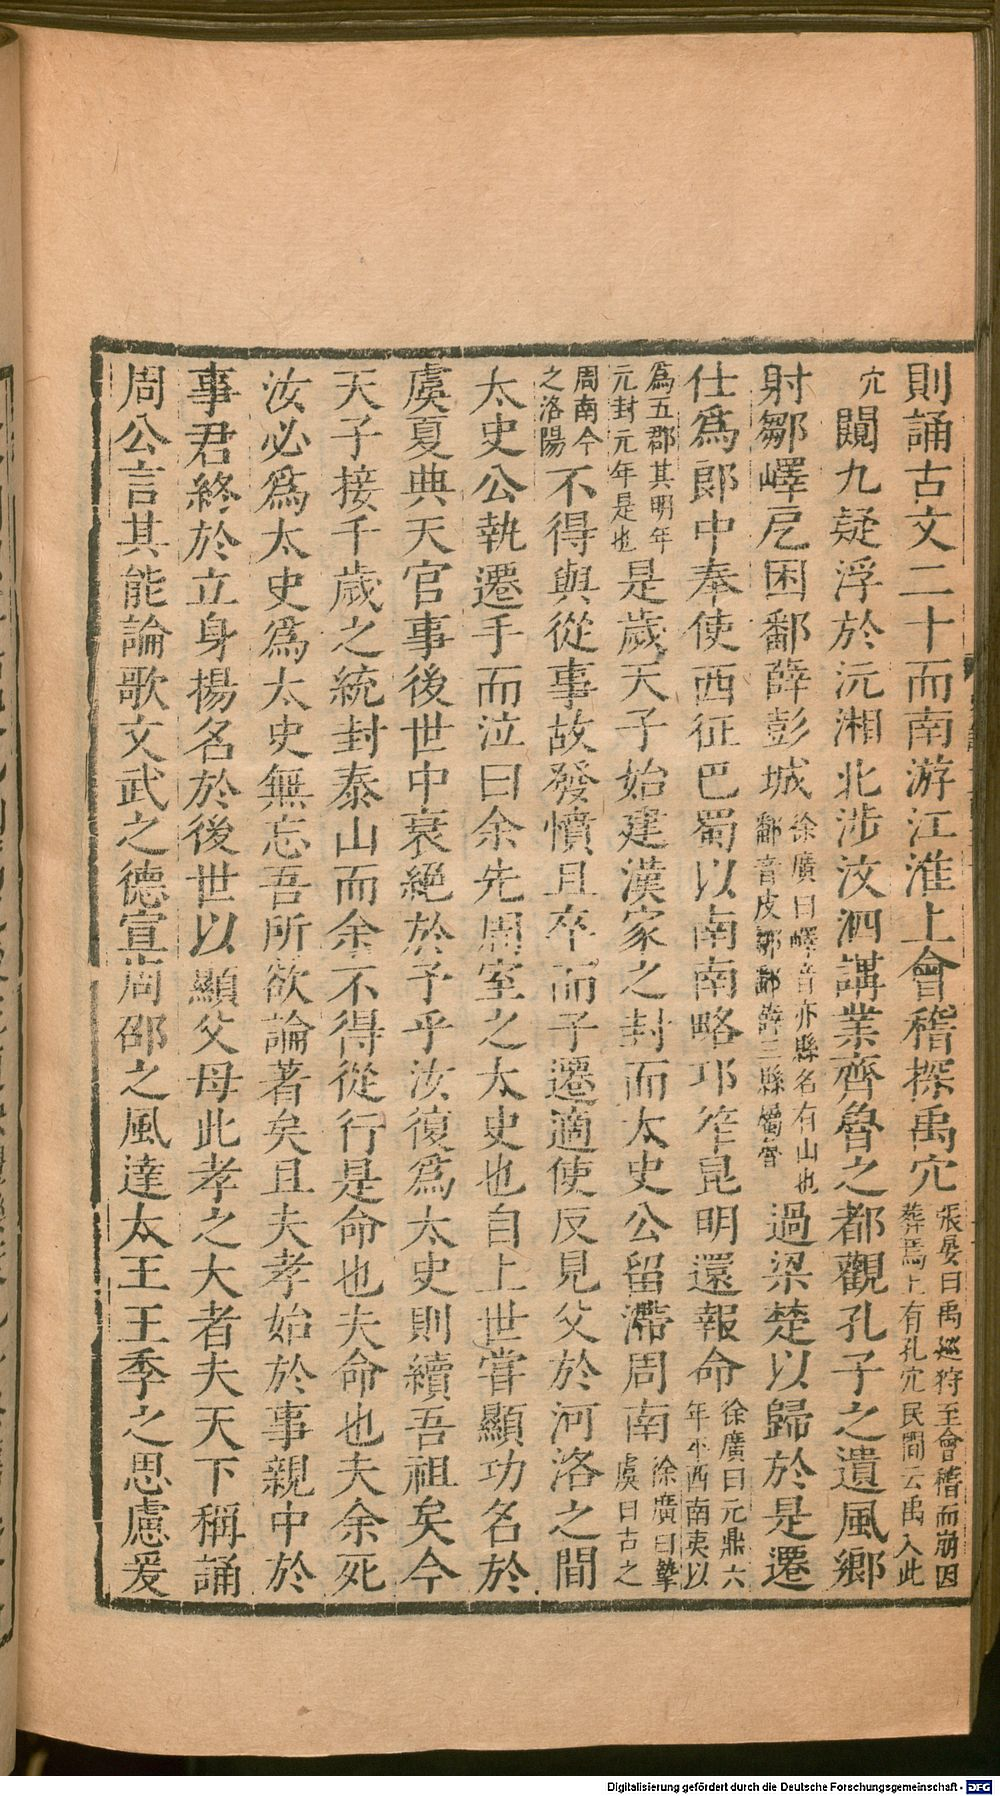 則誦古文二十而南游江淮上會稽探禹穴張晏曰禹巡狩至會稽而崩因葬焉上有孔穴民間云禹入此
穴闚九疑浮於沅湘北涉汶泗講業齊魯之都觀孔子之遺風鄉
射鄒嶧戹困鄱薛彭城徐廣曰嶧音亦縣名有山也鄱音皮鄒鄱薛三縣屬魯過梁楚以歸於是遷
仕爲郎中奉使西征巴蜀以南南略邛笮昆明還報命徐廣曰元鼎六年平西南夷以
爲五郡其明年元封元年是也是歲天子始建漢家之封而太史公留滯周南徐廣曰摯虞曰古之
周南今之洛陽不得與從事故發憤且卒而子遷適使反見父於河洛之間
太史公執遷手而泣曰余先周室之太史也自上世嘗顯功名於
虞夏典天官事後世中衰絕於予乎汝復爲太史則續吾祖矣今
天子接千歲之統封泰山而余不得從行是命也夫命也夫余死
汝必爲太史爲太史無忘吾所欲論著矣且夫孝始於事親中於
事君終於立身揚名於後世以顯父母此孝之大者夫天下稱誦
周公言其能論歌文武之德宣周邵之風達太王王季之思慮爰
Digitalisierung gefördert durch die Deutsche Forschungsgemeinschaft - DFG